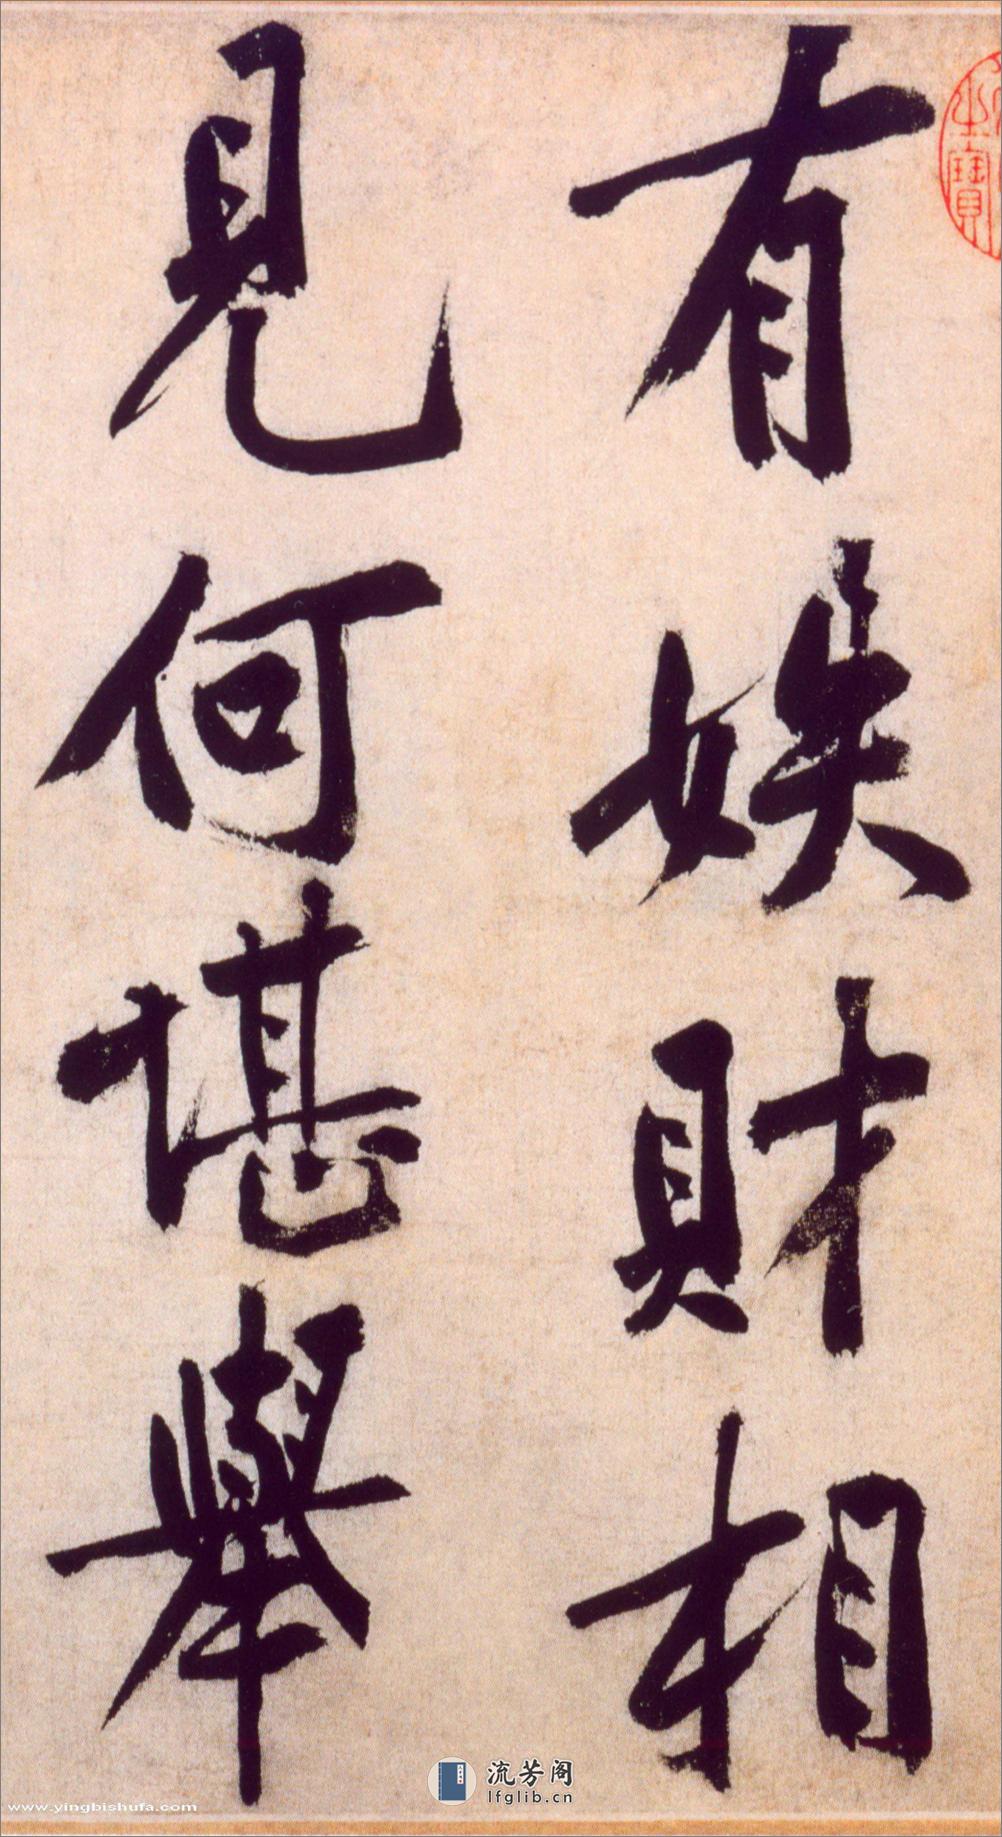 之寶
有財相
見何堪舉
流芳阁
lfglib.cn
www.yingbishufa.com